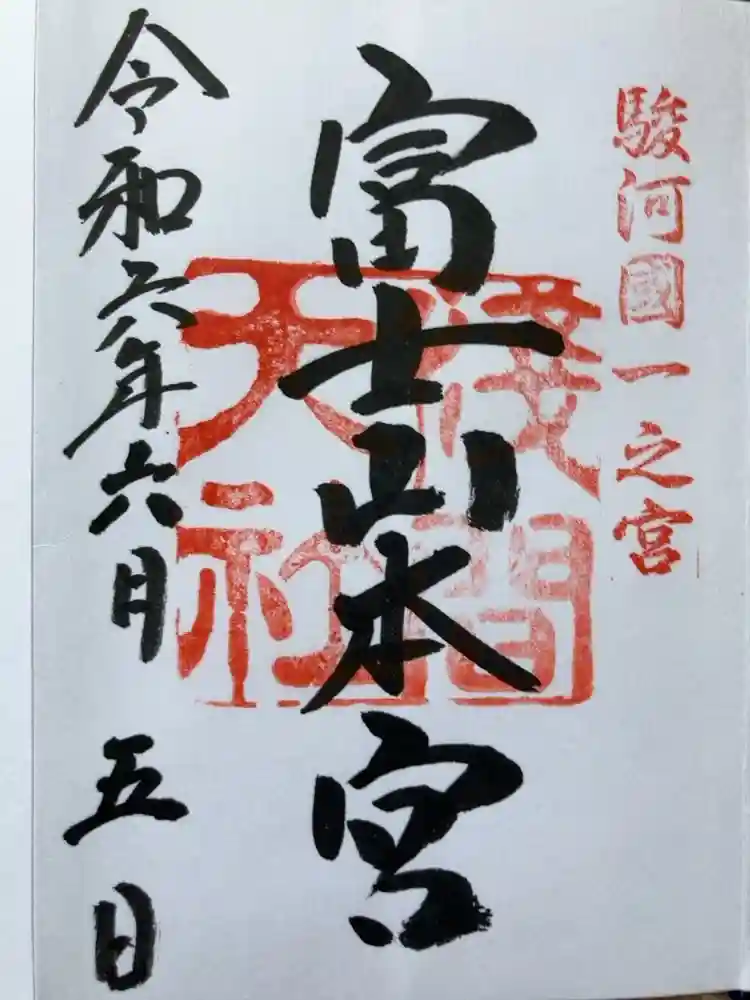 駿河國一之宮
富士山本宮
淺間大社
令和六年六月五日